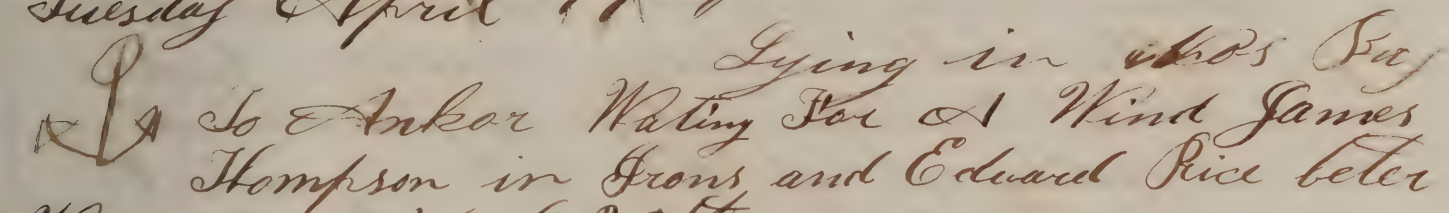 Tuesday April 17
Lying in
To Ankor Wating For A Wind James
Thompson in Irons and Edward Rice beter